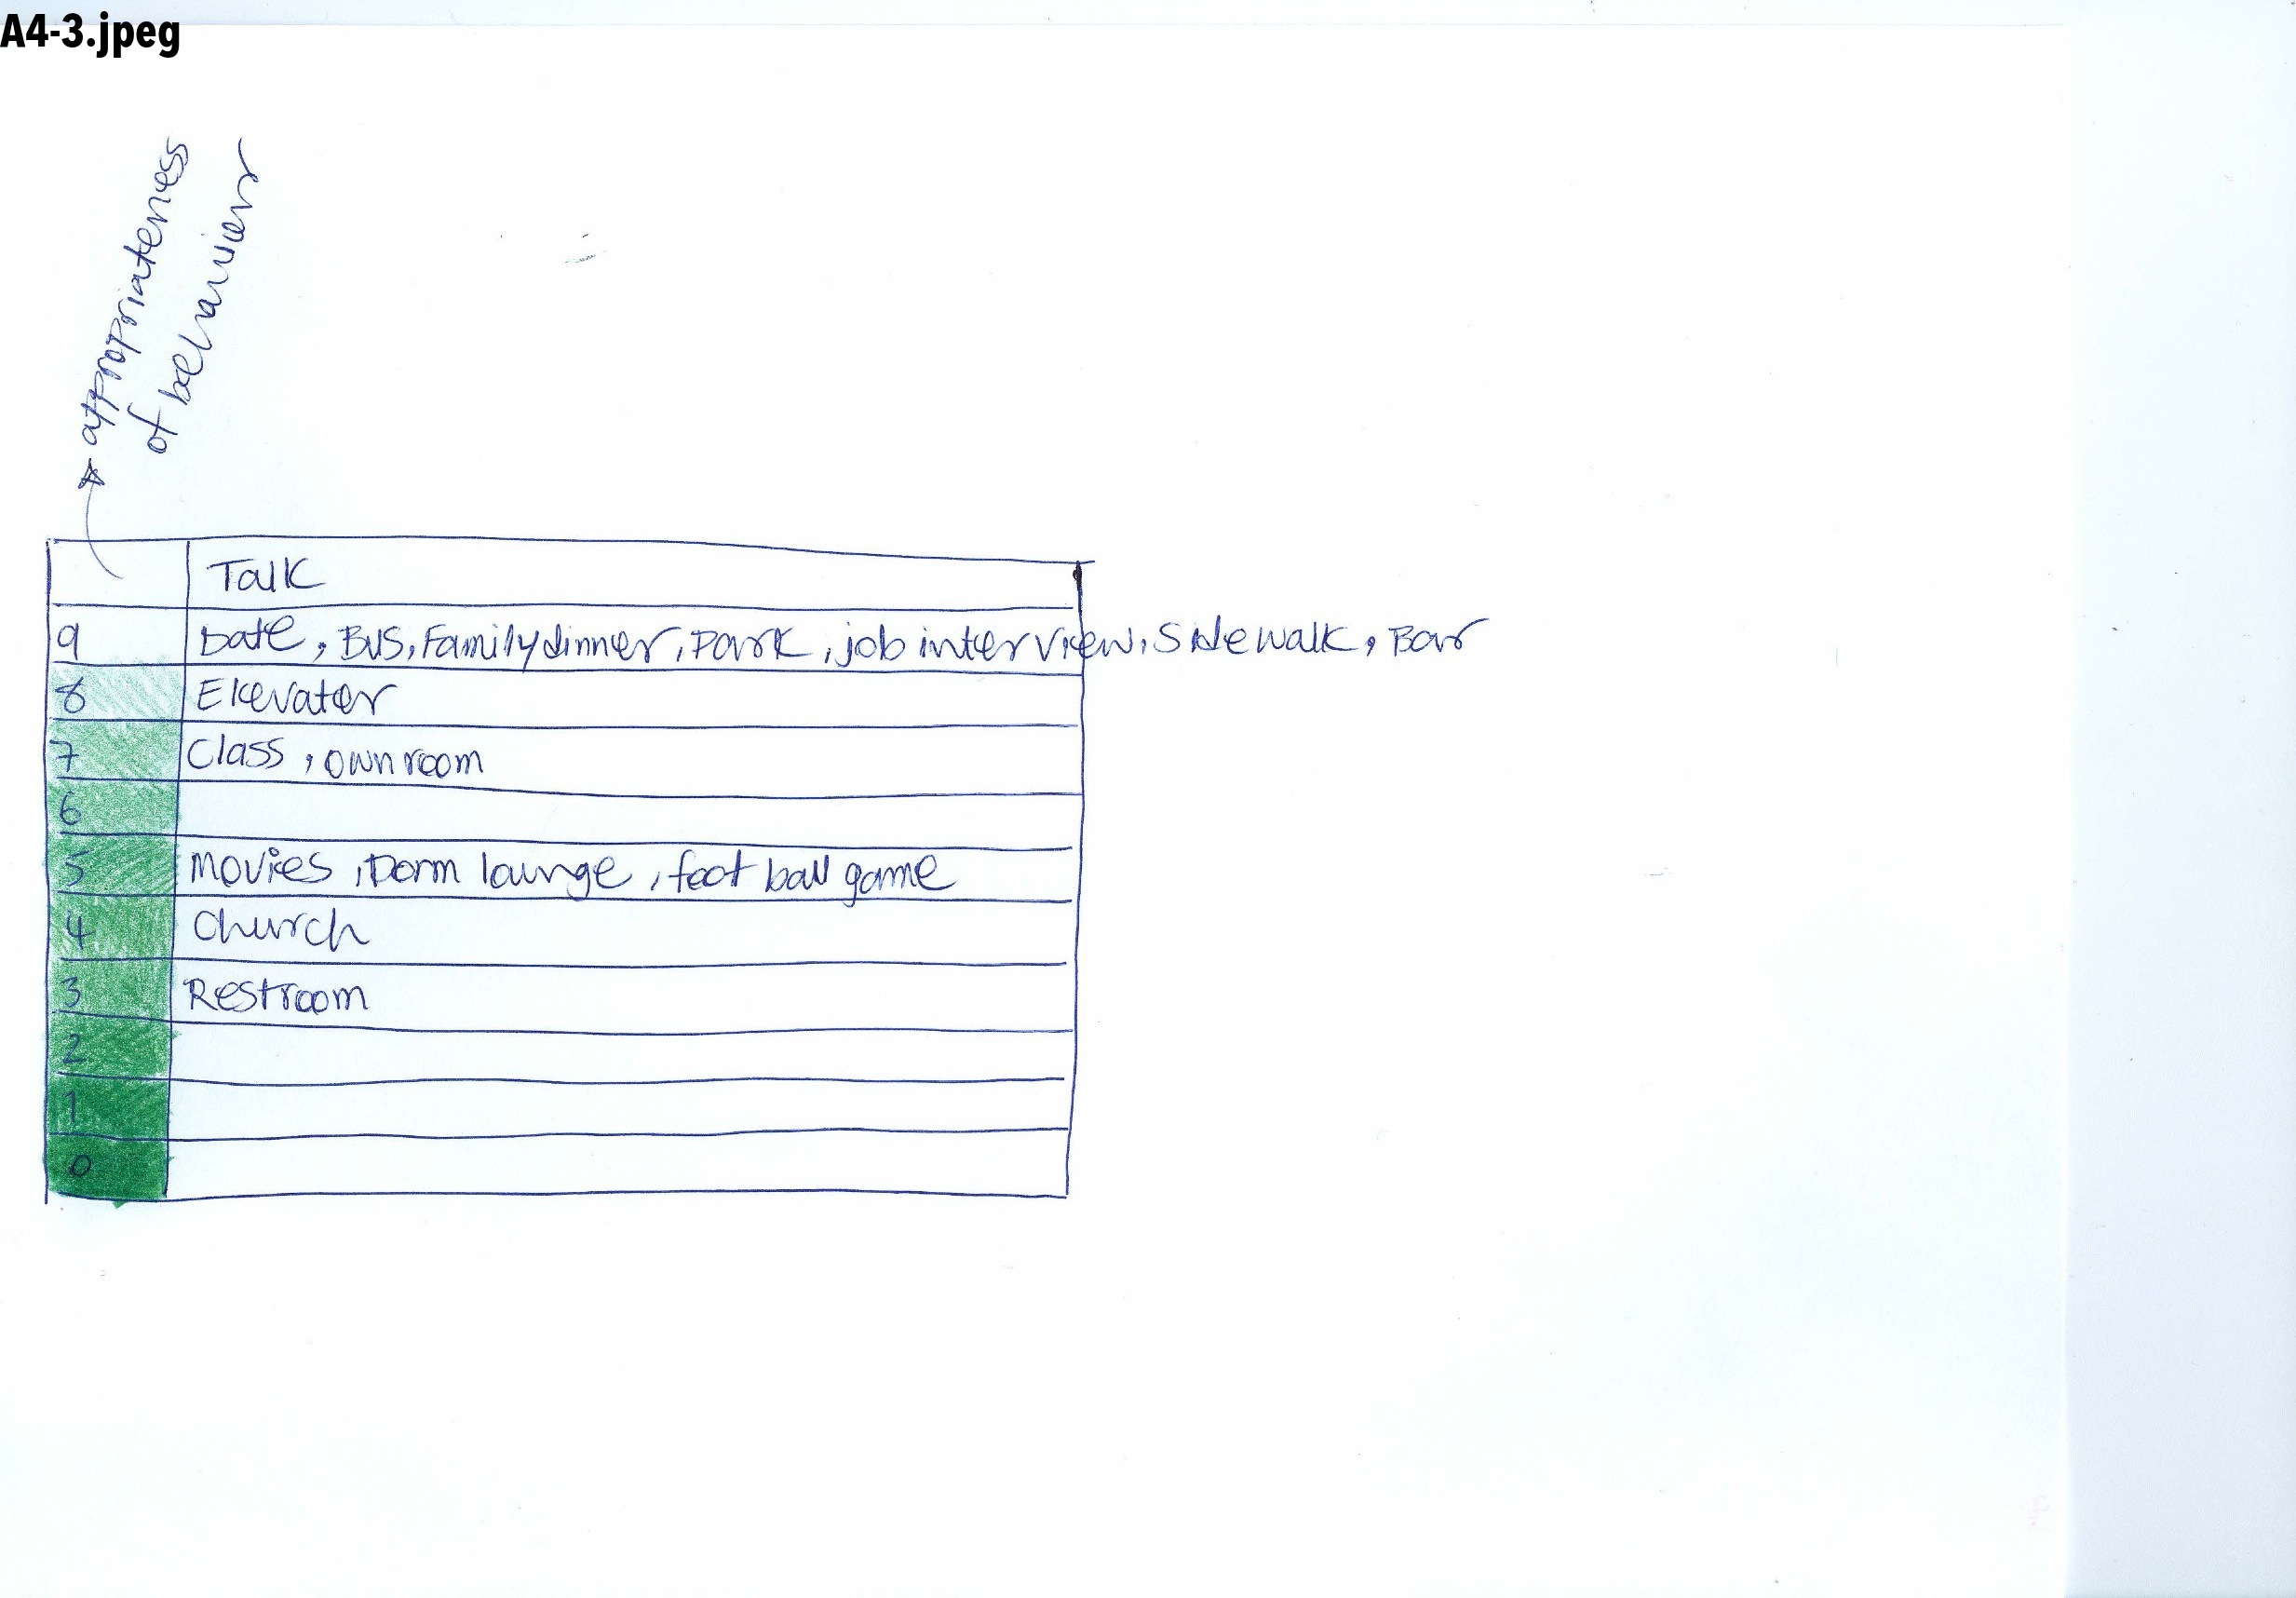 A4-3.jpeg
appropriateness
of behaviors
Talk
9 Date, Bus, Family dinner, Park, job interview, Sidewalk, Bar
8 Elevator
7 Class, own room
6
5 movies, Dorm lounge, foot ball game
4 Church
3 Restroom
2
1
0